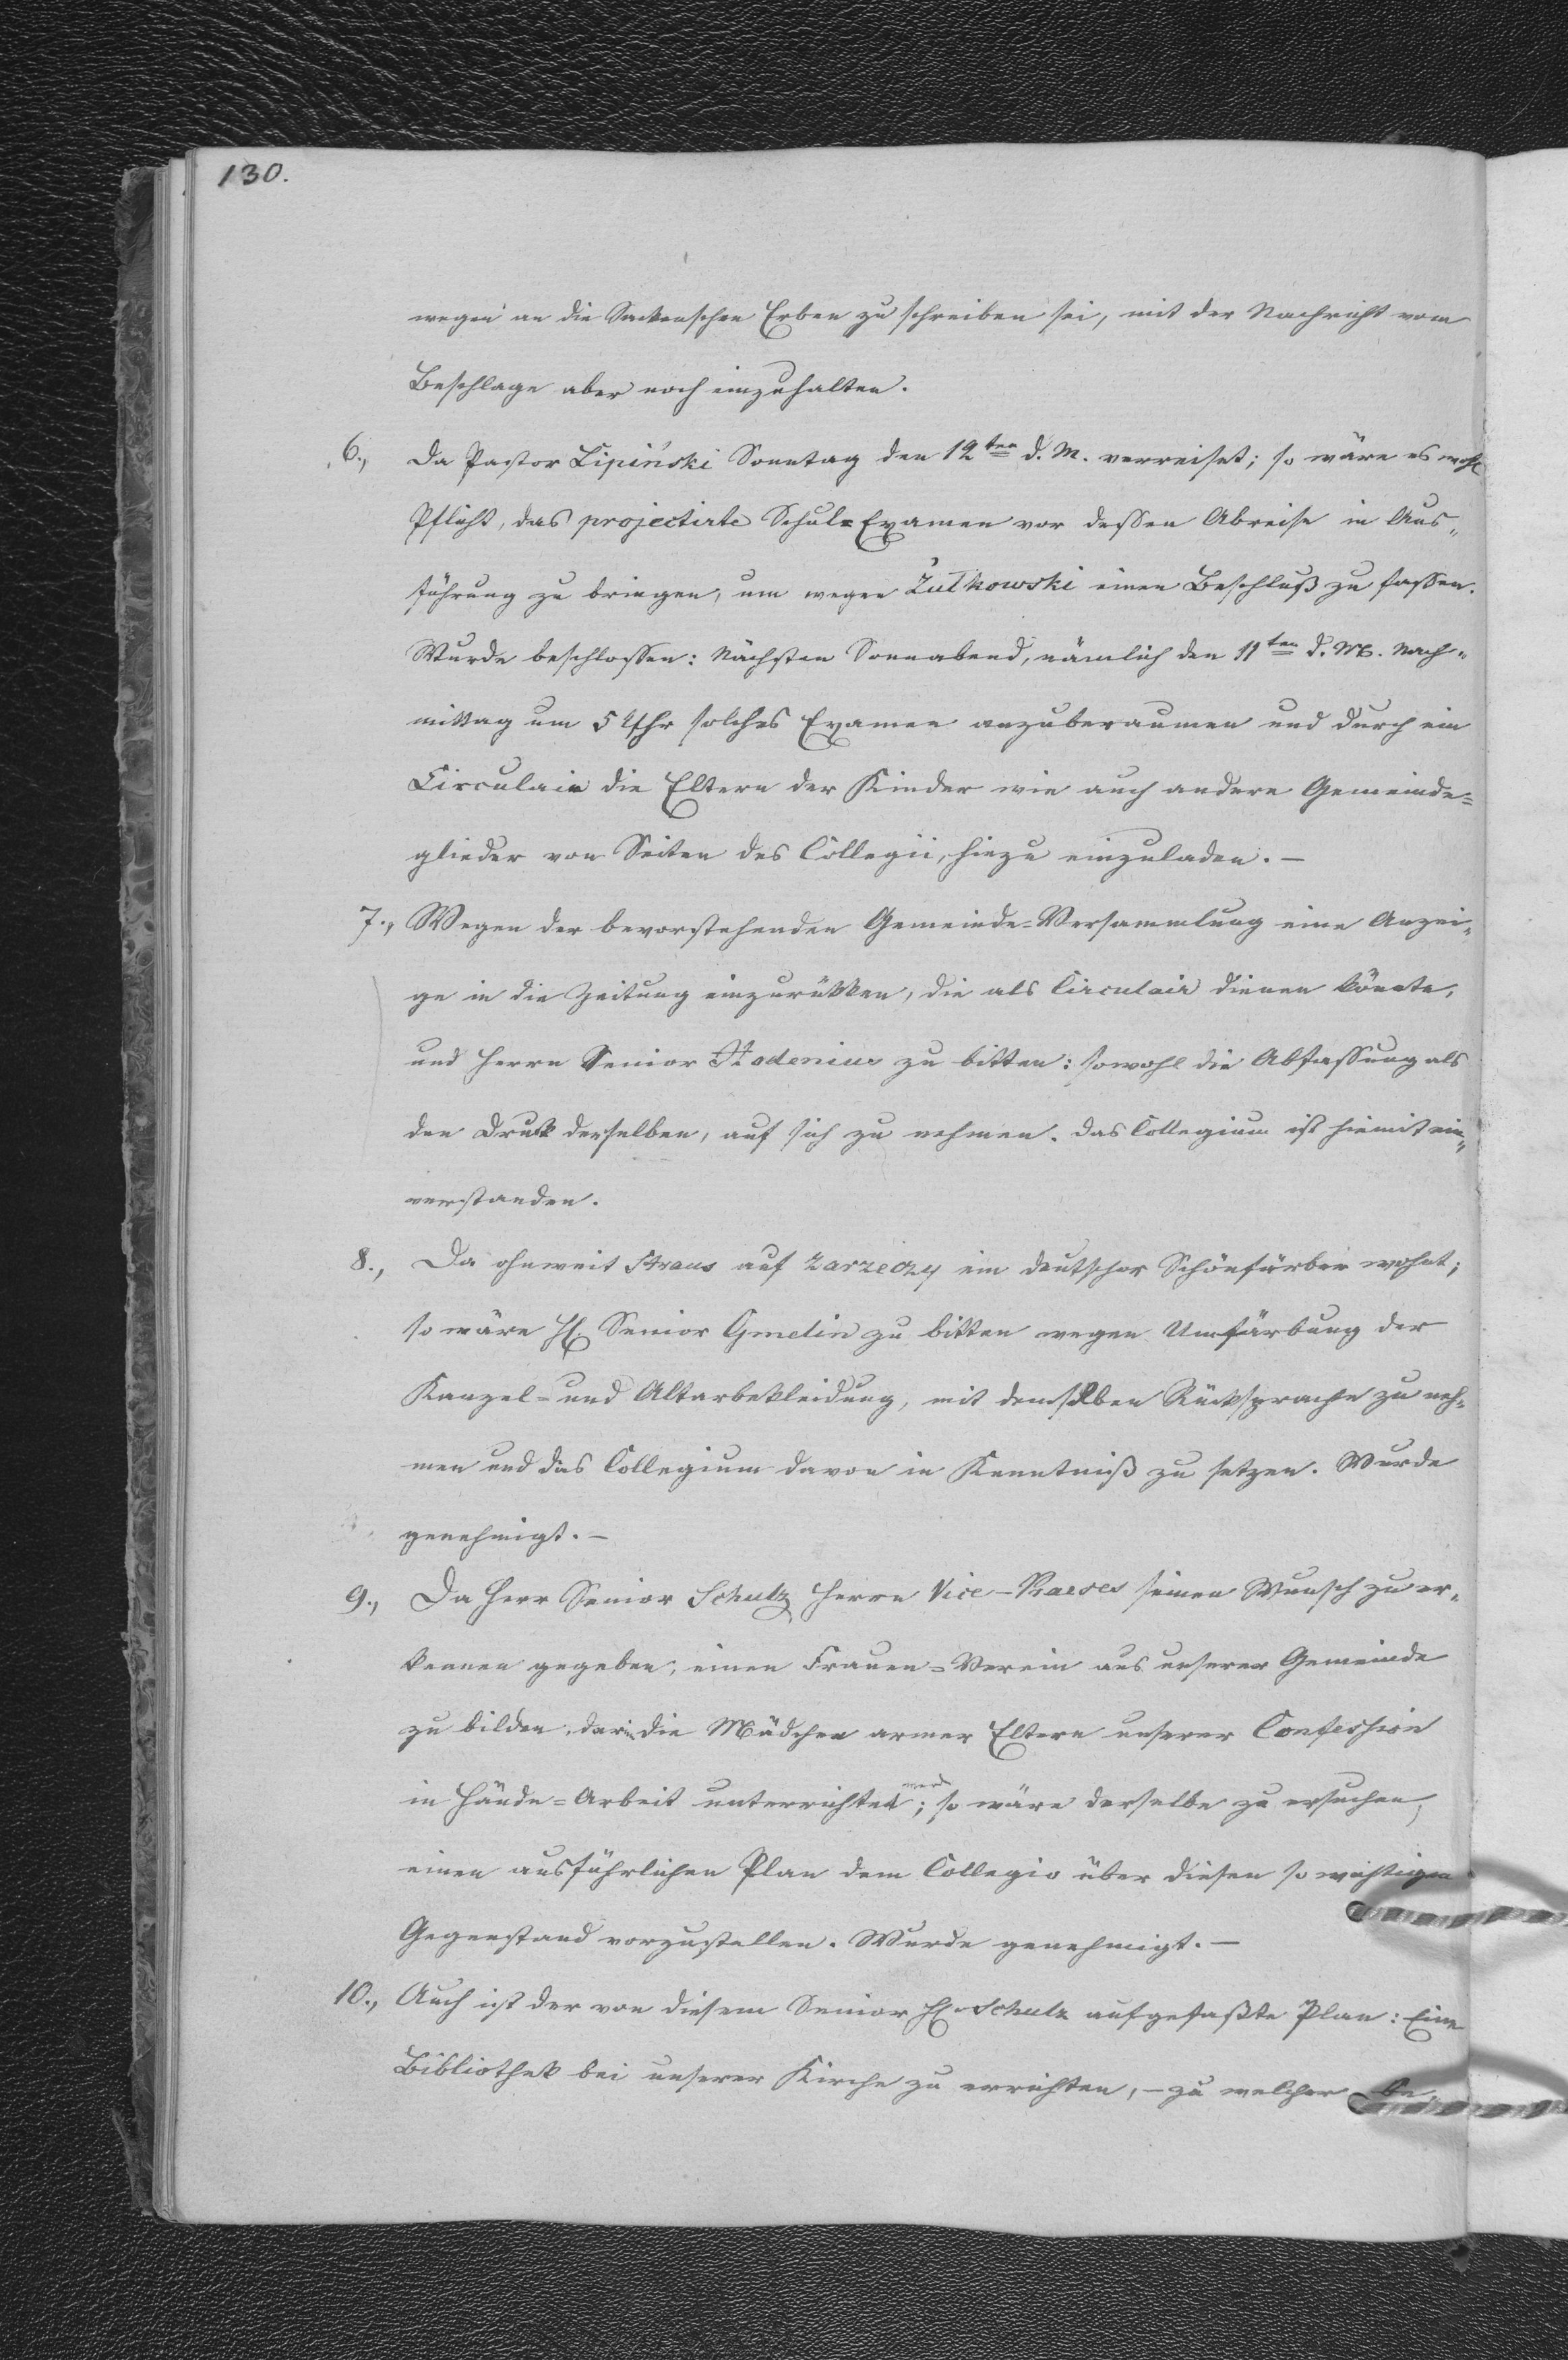 130.
wegen an die Sackenschen Erben zu schreiben sei, mit der Nachricht vom
Beschlage aber noch einzuhalten.
6., Da Pastor Lipiński Sonntag den 12ten d. M. verreiset; so wäre es wohl
Pflicht, das projectirte Schul=Examen vor dessen Abreise in Aus„
führung zu bringen, um wegen Żułkowski einen Beschluß zu fassen.
Wurde beschlossen: Nächsten Sonnabend, nämlich den 11ten d. M. Nach„
mittag um 5 Uhr solches Examen anzuberaumen und durch ein
Circulair die Eltern der Kinder wie auch andere Gemeinde=
glieder von Seiten des Collegii, hiezu einzuladen. —
7., Wegen der bevorstehenden Gemeinde=Versammlung eine Anzei„
ge in die Zeitung einzurükken, die als Circulair dienen könnte,
und Herrn Senior Stodenius zu bitten: sowohl die Abfassung als
den Druck derselben, auf sich zu nehmen. Das Collegium ist hiemit ein„
verstanden.
8., Da ohnweit Straus auf Zarzeczy ein deutscher Schönfärber wohnt;
so wäre H. Senior Gmelin zu bitten wegen Umfärbung der
Kanzel= und Altarbekleidung, mit demselben Rücksprache zu neh=
men und das Collegium davon in Kenntniß zu setzen. Wurde
genehmigt. —
9., Da Herr Senior Schulz Herrn Vice-Praeses seinen Wunsch zu er„
kennen gegeben, einen Frauen=Verein aus unserer Gemeinde
zu bilden, darin die Mädchen armer Eltern unserer Confession
in Hände=Arbeit unterrichtet werd; so wäre derselbe zu ersuchen,
einen ausführlichen Plan dem Collegio über diesen so wichtigen
Gegenstand vorzustellen. Wurde genehmigt. —
10., Auch ist der von diesem Senior H. Schulz aufgefaßte Plan: Eine
Bibliothek bei unserer Kirche zu errichten, — zu welcher be„